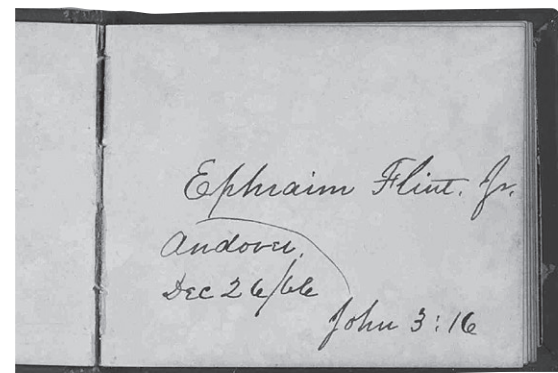 Ephraim Flint. Jr.
Andover,
Dec 26/66
John 3:16